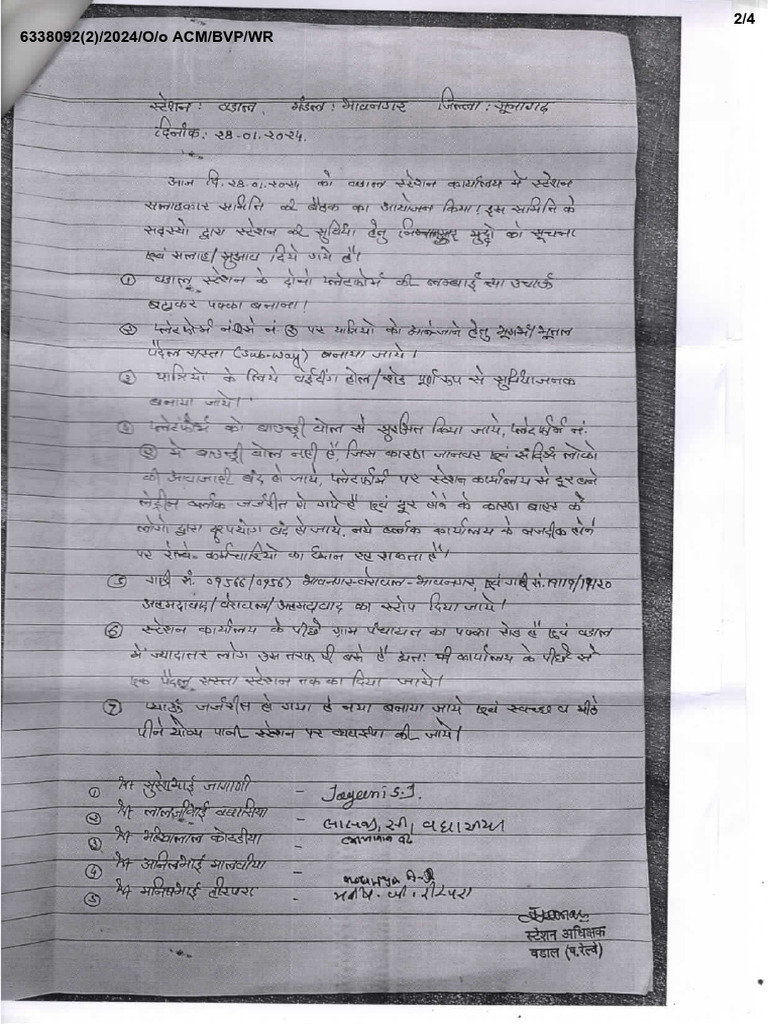 2/4
6338092(2)/2024/O/o ACM/BVP/WR
स्टेशन: वडाल, मंडल: भावनगर जिल्ला: जूनागढ
दिनांक: २८-०१-२०२४.
आज दि. २८.०१.२०२४ को वडाल स्टेशन कार्यालय में स्टेशन
सलाहकार समिति की बैठक का आयोजन किया। इस समिति के
सदस्यो द्वारा स्टेशन की सुविधा हेतु निम्नानुसार मुद्दो की सूचना
एवं सलाह/सुझाव दिये गये है।
① वडाल स्टेशन के दोनो प्लेटफोर्म की लम्बाई तथा उचाई
बढाकर पक्का बनाना।
② प्लेटफोर्म नं. से नं. पर यात्रियो को आनेजाने हेतु भूगर्भ/भूतल
पैदल रास्ता (Sub-way) बनाया जाये।
③ यात्रियो के लिये वेईटींग होल/शेड पूर्ण रूप से सुविधाजनक
बनाया जाये।
④ प्लेटफोर्म को बाउन्ड्री वोल से सुरक्षित किया जाये, प्लेटफोर्म नं.
② मे बाउन्ड्री वोल नही है, जिस कारण जानवर एवं संदिग्ध लोको
की आवाजाही बंद हो जाये, प्लेटफोर्म पर स्टेशन कार्यालय से दूर बने
लेट्रीन ब्लोक जर्जरीत हो गये है एवं दूर होने के कारण बाहर के
लोगो द्वारा दूरपयोग बंद हो जाये. नये ब्लोक कार्यालय के नजदीक होने
पर रेल्वे कर्मचारियो का ध्यान रह सकता है।
⑤ गाडी सं. ०९५६६/०९५६७ भावनगर-वेरावल-भावनगर, एवं गाडी सं. १९११९/१९१२०
अहमदावाद/वेरावल/अहमदावाद का स्टोप दिया जाये।
⑥ स्टेशन कार्यालय के पीछे ग्राम पंचायत का पक्का रोड है एवं वडाल
में ज्यादातर लोग उस तरफ ही बसे है अतः कार्यालय के पीछे से
एक पैदल रास्ता स्टेशन तक का दिया जाये।
⑦ प्याऊ जर्जरीत हो गया है नया बनाया जाये एवं स्वच्छ व मीठे
पीने योग्य पानी स्टेशन पर व्यवस्था की जाये।
① श्री सुरेशभाई जागाणी - Jagani S.J.
② श्री लालजीभाई वघासिया - લાલજી. સી. વઘાસીયા
③ श्री कोटडीया
④ श्री अनिलभाई मालवीया -
⑤ श्री मनिषभाई तीरपरा - મનીષ. બી. તીરપરા
स्टेशन अधिक्षक
वडाल (प.रेल्वे)